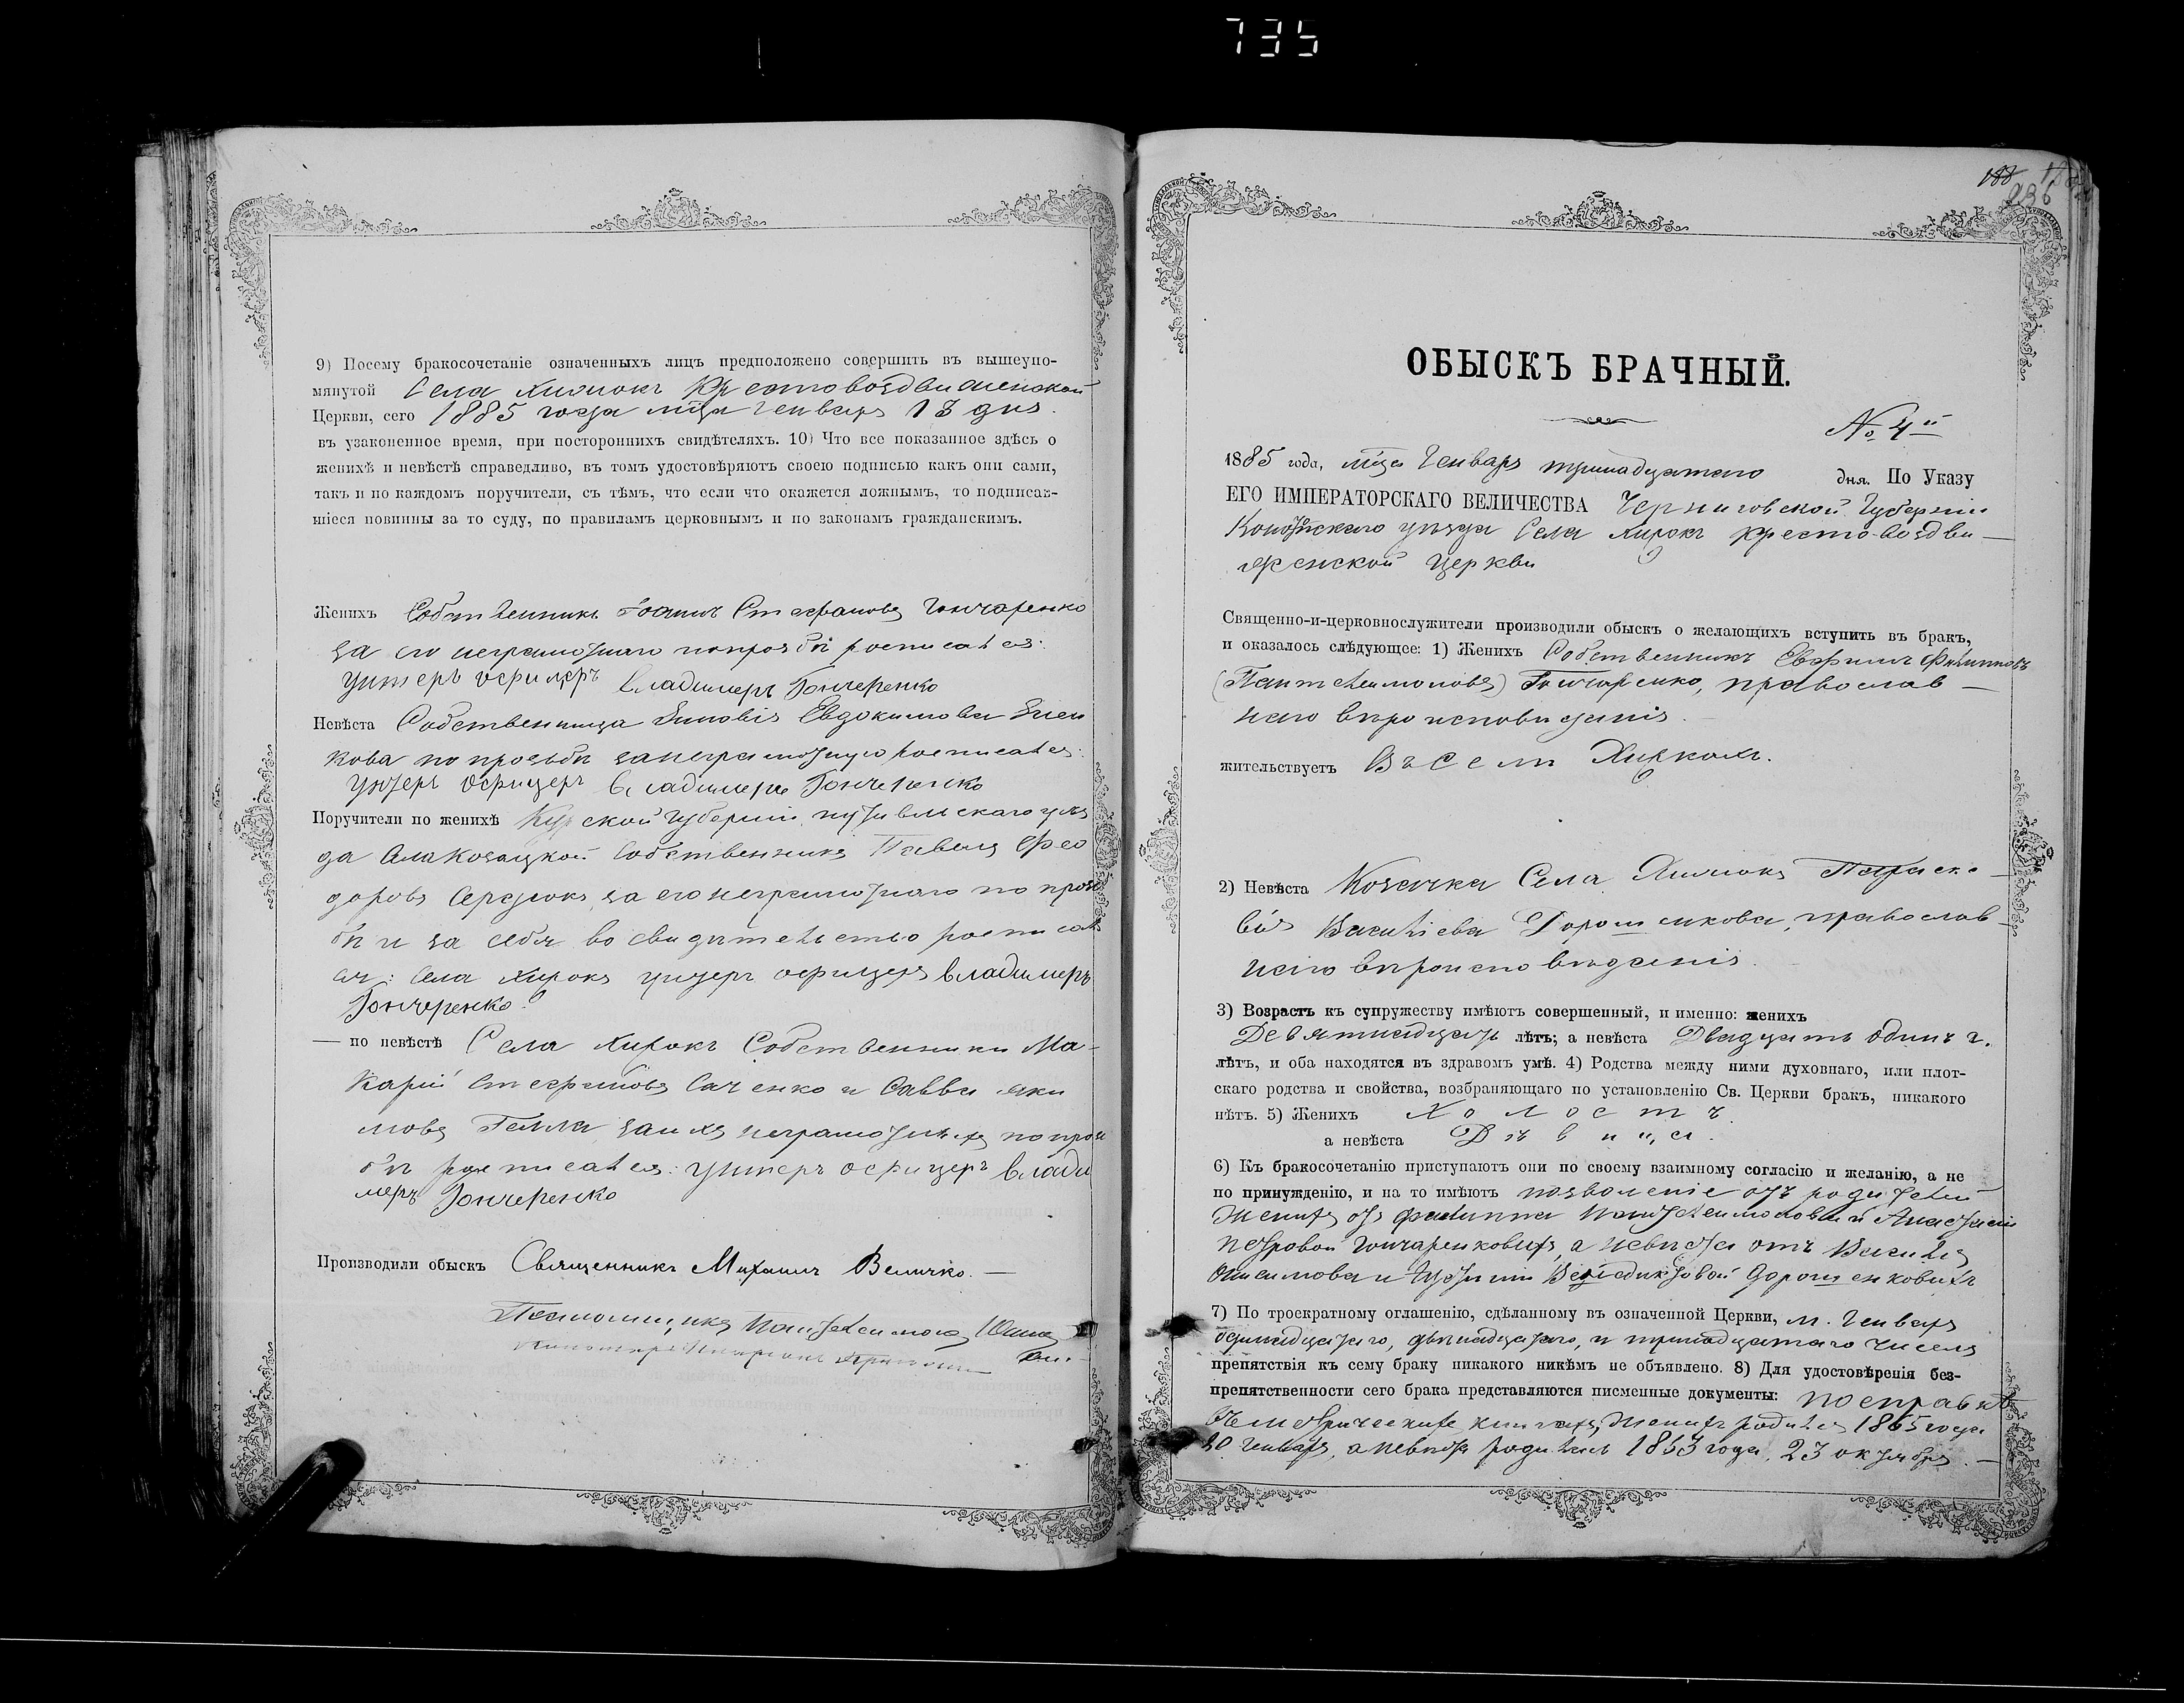 735
9) Посему бракосочетаніе означенныхъ лицъ предположено совершить въ вышеупо-
мянутой Села Хижокъ Крестовоздвиженской
Церкви, сего 1885 года мца Генваря 13 дня.
въ узаконенное время, при постороннихъ свидѣтеляхъ. 10) Что все показанное здѣсь о
женихѣ и невѣстѣ справедливо, въ томъ удостовѣряютъ своею подписью какъ они сами,
такъ и по каждомъ поручители, съ тѣмъ, что если что окажется ложнымъ, то подписав-
шіеся повинны за то суду, по правиламъ церковнымъ и по законамъ гражданскимъ.
Женихъ Собственникъ Іоаннъ Стефановъ Гончаренко
за его неграмотнаго по прозбѣ росписался:
Унтеръ офицеръ Владимеръ Гончеренко
Невѣста Собственница Зиновія Евдокимова
кова по прозьбѣ за неграмотную росписался:
Унтеръ Офицеръ Владимеръ Гончеренко
Поручители по женихѣ Курской Губерніи путивльскаго уѣз
да Села Козацкой Собственникъ Павелъ Фео
доровъ Сердюкъ за его неграмотнаго по прозь
бѣ и за себя во свидѣтельство росписал
ся: Села Хижокъ унтеръ офицеръ Владимеръ
Гончеренко
— по невѣстѣ Села Хижокъ Собственники Ма-
карій Стефановъ Саченко и Савва Яки
мовъ за ихъ неграмотныхъ по прозь
бѣ росписался: Унтеръ офицеръ Влади
меръ Гончеренко
Производили обыскъ Священникъ Михаилъ Величко. —
Пантелеимонъ
188
236
ОБЫСКЪ БРАЧНЫЙ.
№ 4й
1885 года, мца Генваря тринадцатаго дня. По Указу
ЕГО ИМПЕРАТОРСКАГО ВЕЛИЧЕСТВА Черниговской Губерніи
Конотопскаго уѣзда Села Хижокъ Кресто-воздви—
женской Церкви
Священно-и-церковнослужители производили обыскъ о желающихъ вступить въ бракъ,
и оказалось слѣдующее: 1) Женихъ Собственникъ Филипповъ
(Пантелеимоновъ) Гончаренко, православ—
наго вѣроисповѣданія.
жительствуетъ Въ Селѣ Хижкахъ.
2) Невѣста Козачка Села Хижокъ Параске—
вія Василіева Дорошенкова, православ—
наго вѣроисповѣданія.
3) Возрастъ къ супружеству имѣютъ совершенный, и именно: женихъ
Девятнадцать лѣтъ; а невѣста Двадцать одинъ г.
лѣтъ, и оба находятся въ здравомъ умѣ. 4) Родства между ними духовнаго, или плот-
скаго родства и свойства, возбраняющаго по установленію Св. Церкви бракъ, никакого
нѣтъ. 5) Женихъ Холостъ
а невѣста Дѣвица.
6) Къ бракосочетанію приступаютъ они по своему взаимному согласію и желанію, а не
по принужденію, и на то имѣютъ позволеніе отъ родителей
Жениха отъ Филиппа Пантелеимонова и Анастасіи
Петровой Гончаренковыхъ, а невѣста отъ Василія
Онисимова и Венедиктовой Дорошенковыхъ
7) По троекратному оглашенію, сдѣланному въ означенной Церкви, м. Генваря
одинадцатаго, двѣнадцатаго, и тринадцатаго чиселъ
препятствія къ сему браку никакого никѣмъ не объявлено. 8) Для удостовѣренія без-
препятственности сего брака представляются писменные документы: по справкѣ
въ метрическихъ книгахъ, Женихъ родился 1865 года
20 Генваря, а невѣста родилась 1863 года, 23 октября. —